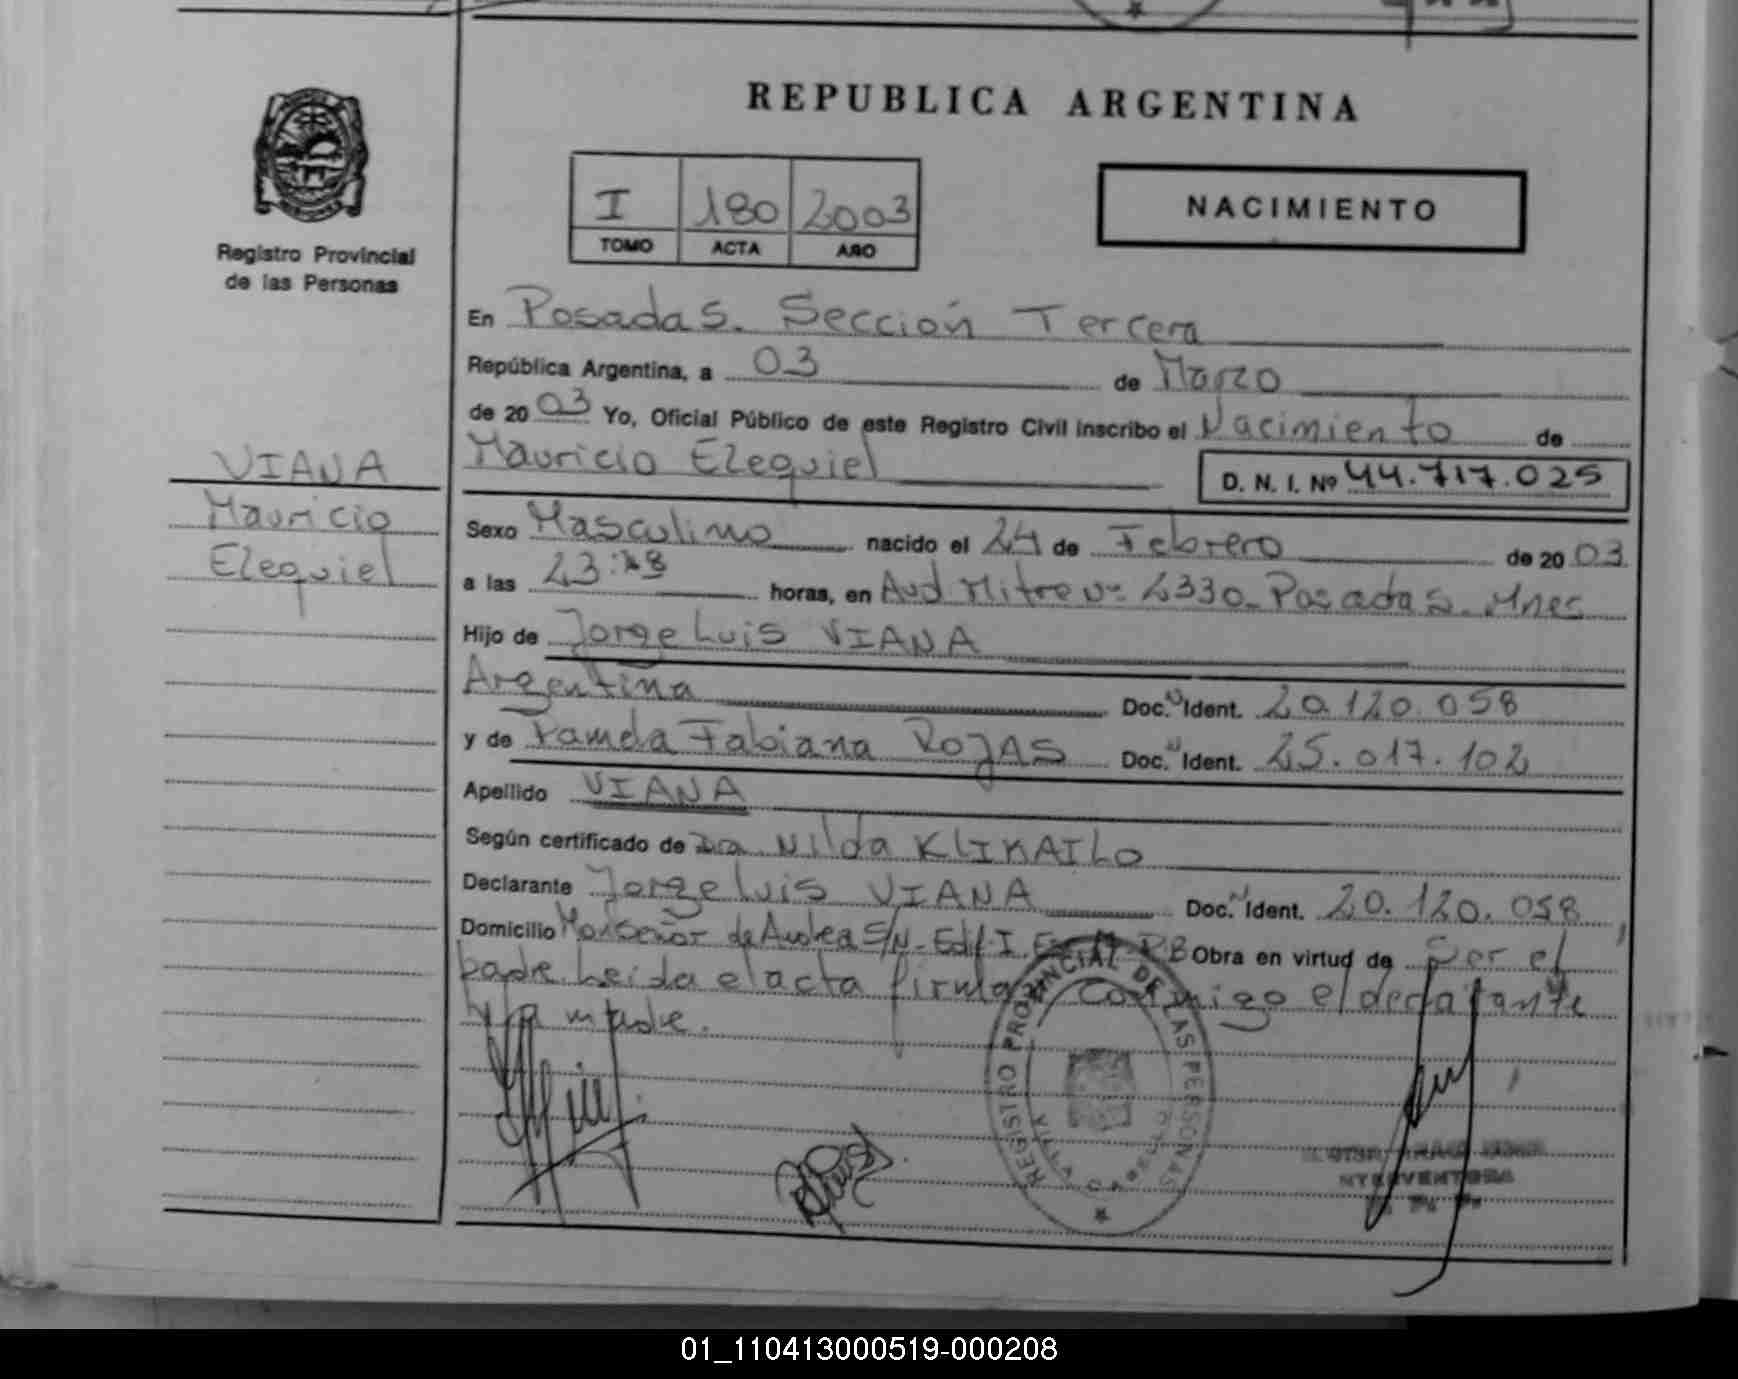 REPUBLICA ARGENTINA
Registro Provincial
de las Personas
I 180 2003
TOMO ACTA AÑO
NACIMIENTO
En Posadas. Sección Tercera
República Argentina, a 03 de Marzo
de 2003 Yo, Oficial Público de este Registro Civil inscribo el Nacimiento de
Mauricio Ezequiel D. N. I. Nº 44.717.025
VIANA
Mauricio
Ezequiel
Sexo Masculino nacido el 24 de Febrero de 20 03
a las 23: horas, en Avd. Mitre Nº 2330. Posadas. Mnes
Hijo de Jorge Luis VIANA
Argentina Doc. Ident. 20.120.058
y de Pamela Fabiana ROJAS Doc. Ident. 25.017.102
Apellido VIANA
Según certificado de Dra Nilda KLIMAILO
Declarante Jorge Luis VIANA Doc. Ident. 20.120.058
Domicilio Monseñor de Andrea S/N. Edif. I. PB Obra en virtud de Ser el
padre. Leida el acta firman conmigo el declarante
y la madre.
REGISTRO PROVINCIAL DE LAS PERSONAS
VILLA CABELLO
INTERVENTORA
01_110413000519-000208